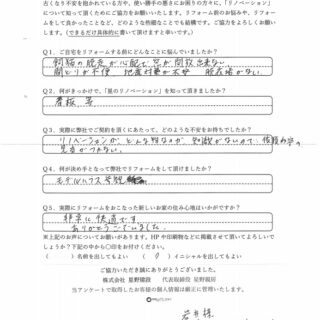 古くなり不安を抱かれている方や、使い勝手の悪さにお困りの方々に、「リノベーション」に
ついて知って頂くためのご協力をお願いいたします。リフォーム前のお悩みや、リフォーム
をして良かったことなど、どのような些細なことでも結構です。ご協力をよろしくお願いし
ます。(できるだけ具体的に書いて頂けますと幸いです。)
Q1、ご自宅をリフォームする前にどんなことに悩んでいましたか？
飼猫の脱走が心配で窓が開放出来ない
間どりが不便 地震対策が不安 脱衣場がない
Q2、何がきっかけで、「星のリノベーション」を知って頂きましたか？
看板等
Q3、実際に弊社でご契約を頂くにあたって、どのような不安をお持ちでしたか？
リノベーションが、どんな物なのか、知識がないので、
見当がつかない。
Q4、何が決め手となって弊社でリフォームをして頂けましたか？
モデルハウス
Q5、実際にリフォームをおこなった新しいお家の住み心地はいかがですか？
非常に快適です。
ありがとうございました。
※上記のお声についてお願いがあります。HPや印刷物などに掲載させて頂いてよろしいで
しょうか？下記の中から〇印をお付けください。
( )名前を出してもよい ( )イニシャルを出してもよい
ご協力いただき誠にありがとうございました。
株式会社 星野建設 代表取締役 星野親房
当アンケートで取得したお客様の個人情報は厳正に管理いたします。
様